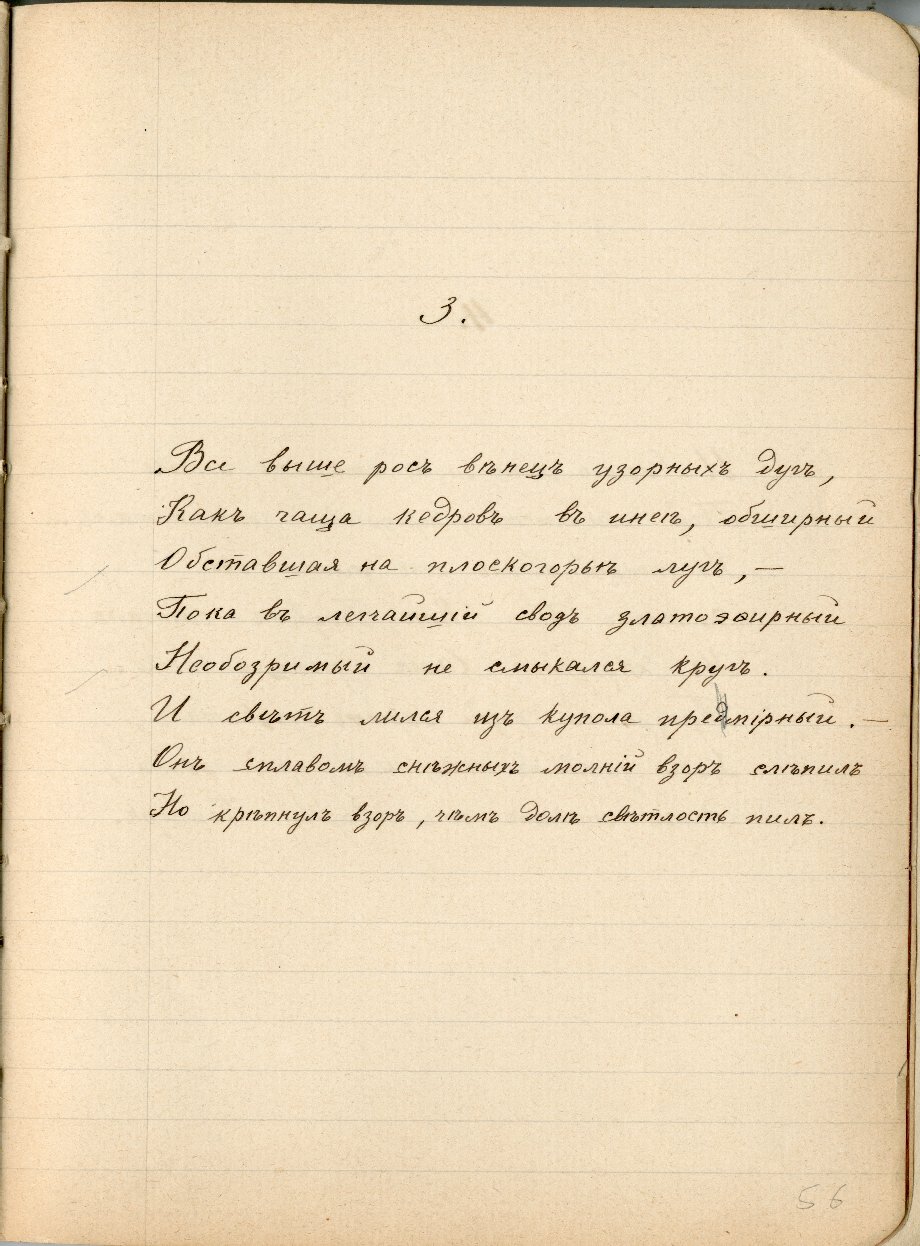 3.
Все выше росъ вѣнецъ узорныхъ дугъ,
Какъ чаща кедровъ въ инеѣ, обширный
Обставшая на плоскогорьѣ лугъ,—
Пока въ легчайшій сводъ златоэѳирный
Необозримый не смыкался кругъ.
И свѣтъ лился изъ купола предмірный.—
Онъ сплавомъ снѣжныхъ молній взоръ слѣпилъ
Но крѣпнулъ взоръ, чѣмъ долѣ свѣтлость пилъ.
56